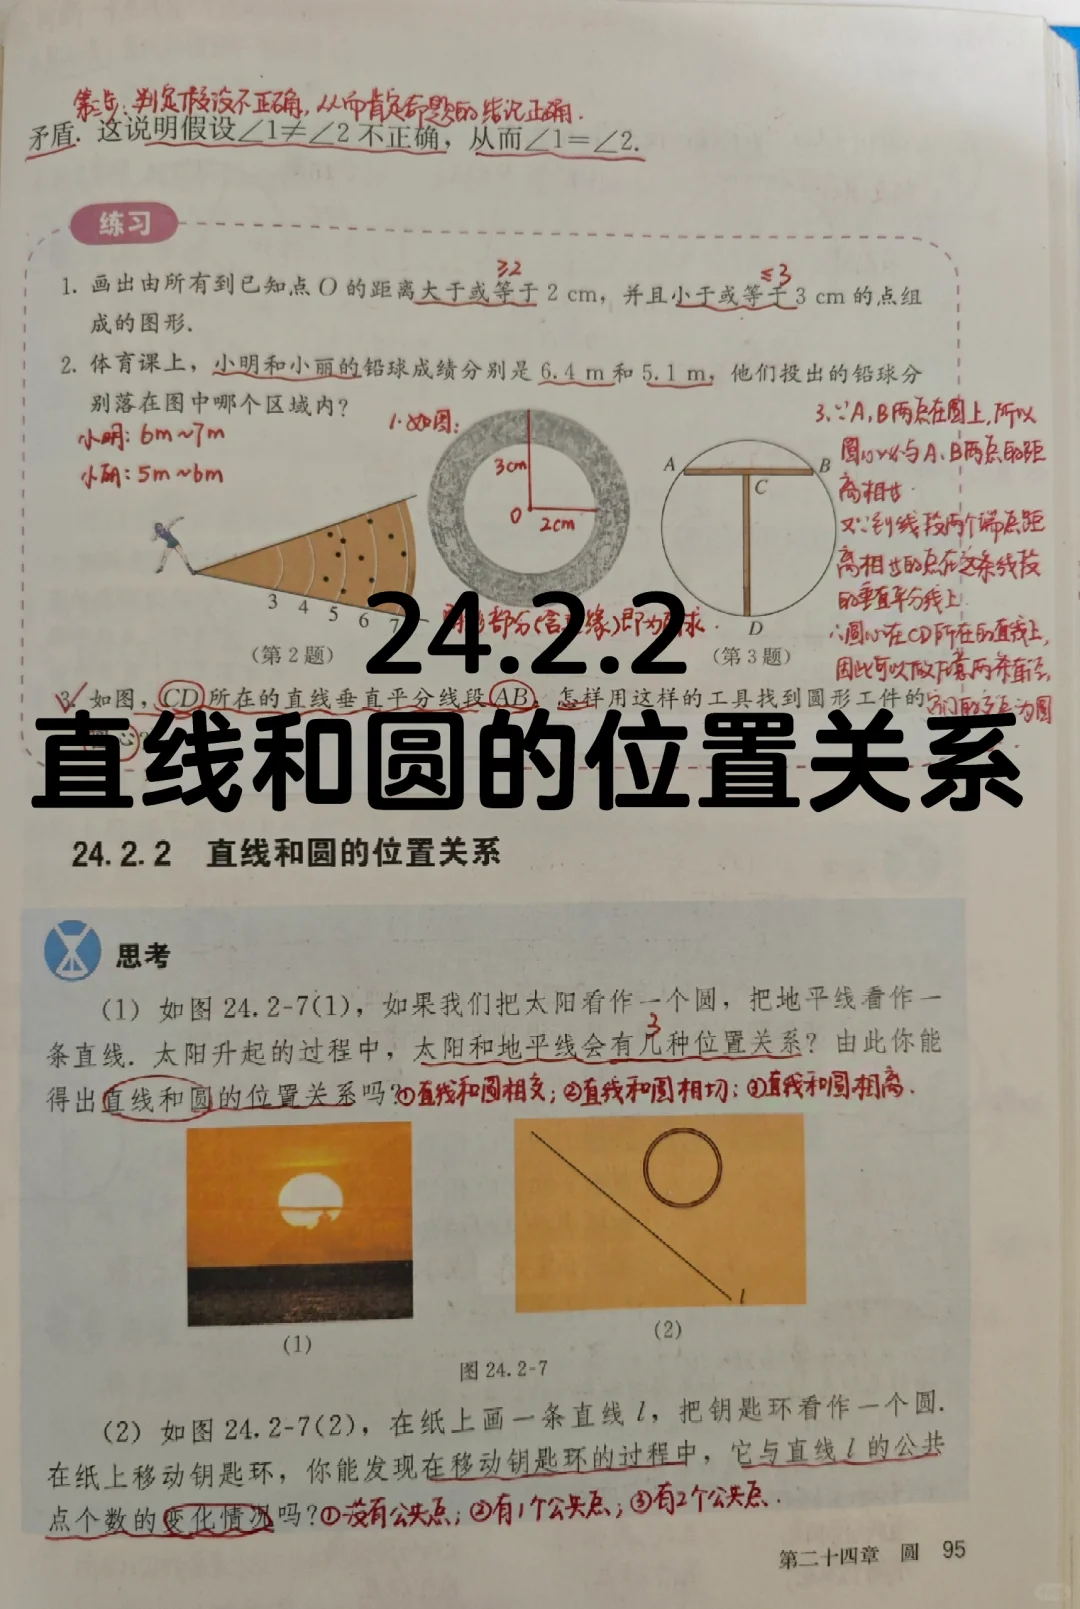 第三步：判定假设不正确，从而肯定命题的结论正确.
矛盾. 这说明假设∠1≠∠2不正确，从而∠1=∠2.
练习
≥2
≤3
1. 画出由所有到已知点O的距离大于或等于2 cm，并且小于或等于3 cm的点组
成的图形.
2. 体育课上，小明和小丽的铅球成绩分别是6.4 m和5.1 m，他们投出的铅球分
别落在图中哪个区域内？
小明：6m~7m
小丽：5m~6m
1.如图：
3cm
O
2cm
3 4 5 6 7
(第2题)
部分(含边缘)即为所求.
A
B
C
D
(第3题)
3.∵A,B两点在圆上,所以
圆心必与A、B两点的距
离相等.
又∵到线段两个端点距
离相等的点在这条线段
的垂直平分线上.
∴圆心在CD所在的直线上,
因此可以做任意两条直径,
它们的交点为圆
3. 如图，CD所在的直线垂直平分线段AB. 怎样用这样的工具找到圆形工件的
圆心？
24.2.2
直线和圆的位置关系
24.2.2 直线和圆的位置关系
思考
(1) 如图24.2-7(1)，如果我们把太阳看作一个圆，把地平线看作一
3
条直线. 太阳升起的过程中，太阳和地平线会有几种位置关系？由此你能
得出直线和圆的位置关系吗？①直线和圆相交；②直线和圆相切；③直线和圆相离.
l
(1)
(2)
图24.2-7
(2) 如图24.2-7(2)，在纸上画一条直线l，把钥匙环看作一个圆.
在纸上移动钥匙环，你能发现在移动钥匙环的过程中，它与直线l的公共
点个数的变化情况吗？①没有公共点；②有1个公共点；③有2个公共点.
第二十四章 圆 95